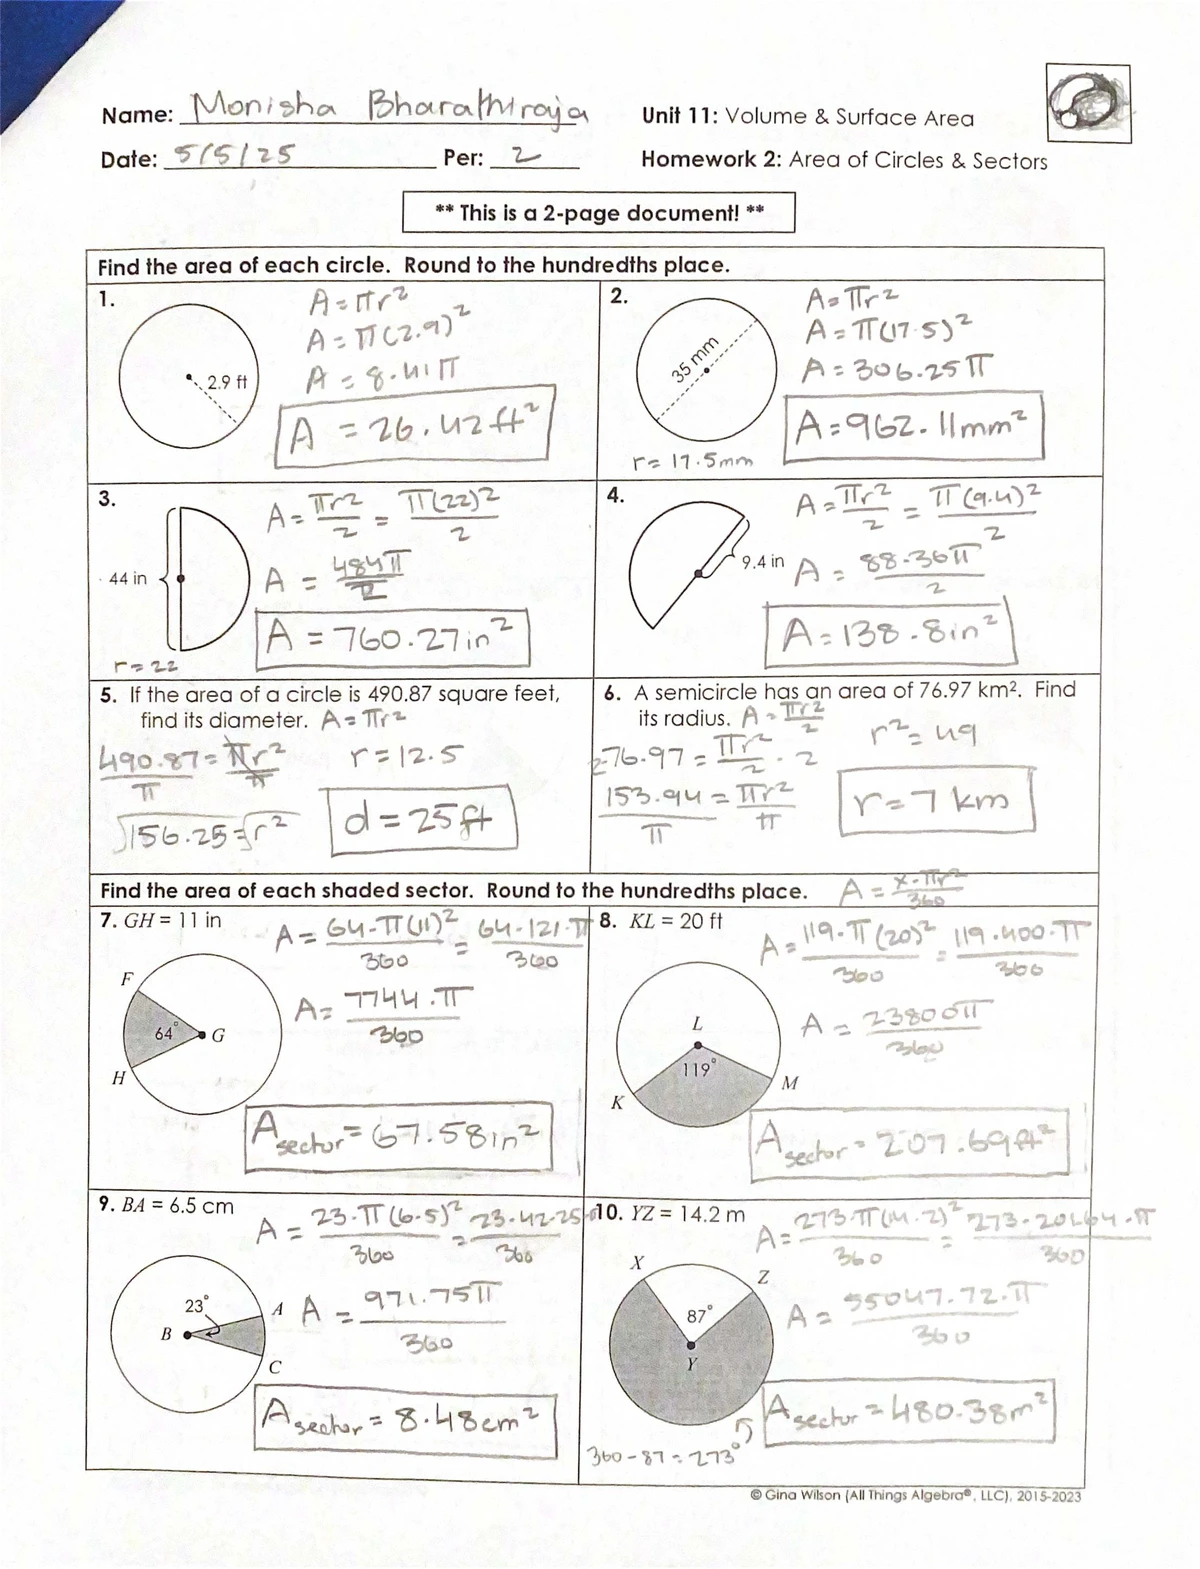 Name: Monisha Bharathiraja
Unit 11: Volume & Surface Area
Date: 5/5/25 Per: 2
Homework 2: Area of Circles & Sectors
** This is a 2-page document! **
Find the area of each circle. Round to the hundredths place.
1.
2.9 ft
A = πr²
A = π(2.9)²
A = 8.41π
A = 26.42 ft²
2.
35 mm
r = 17.5mm
A = πr²
A = π(17.5)²
A = 306.25π
A = 962.11mm²
3.
44 in
r = 22
A = πr²/2 = π(22)²/2
A = 484π/2
A = 760.27in²
4.
9.4 in
A = πr²/2 = π(9.4)²/2
A = 88.36π/2
A = 138.8in²
5. If the area of a circle is 490.87 square feet,
find its diameter. A = πr²
490.87/π = πr²/π
√156.25 = √r²
r = 12.5
d = 25ft
6. A semicircle has an area of 76.97 km². Find
its radius. A = πr²/2
2·76.97 = πr²/2 · 2
153.94/π = πr²/π
r² = 49
r = 7 km
Find the area of each shaded sector. Round to the hundredths place. A = x·πr²/360
7. GH = 11 in
F
64°
G
H
A = 64·π(11)²/360 = 64·121·π/360
A = 7744·π/360
A sector = 67.58in²
8. KL = 20 ft
L
119°
K
M
A = 119·π(20)²/360 = 119·400·π/360
A = 23800π/360
A sector = 207.69ft²
9. BA = 6.5 cm
23°
A
B
C
A = 23·π(6.5)²/360 = 23·42.25π/360
A = 971.75π/360
A sector = 8.48cm²
10. YZ = 14.2 m
X
Z
87°
Y
360-87 = 273°
A = 273·π(14.2)²/360 = 273·201.64·π/360
A = 55047.72·π/360
A sector = 480.38m²
© Gina Wilson (All Things Algebra®, LLC), 2015-2023